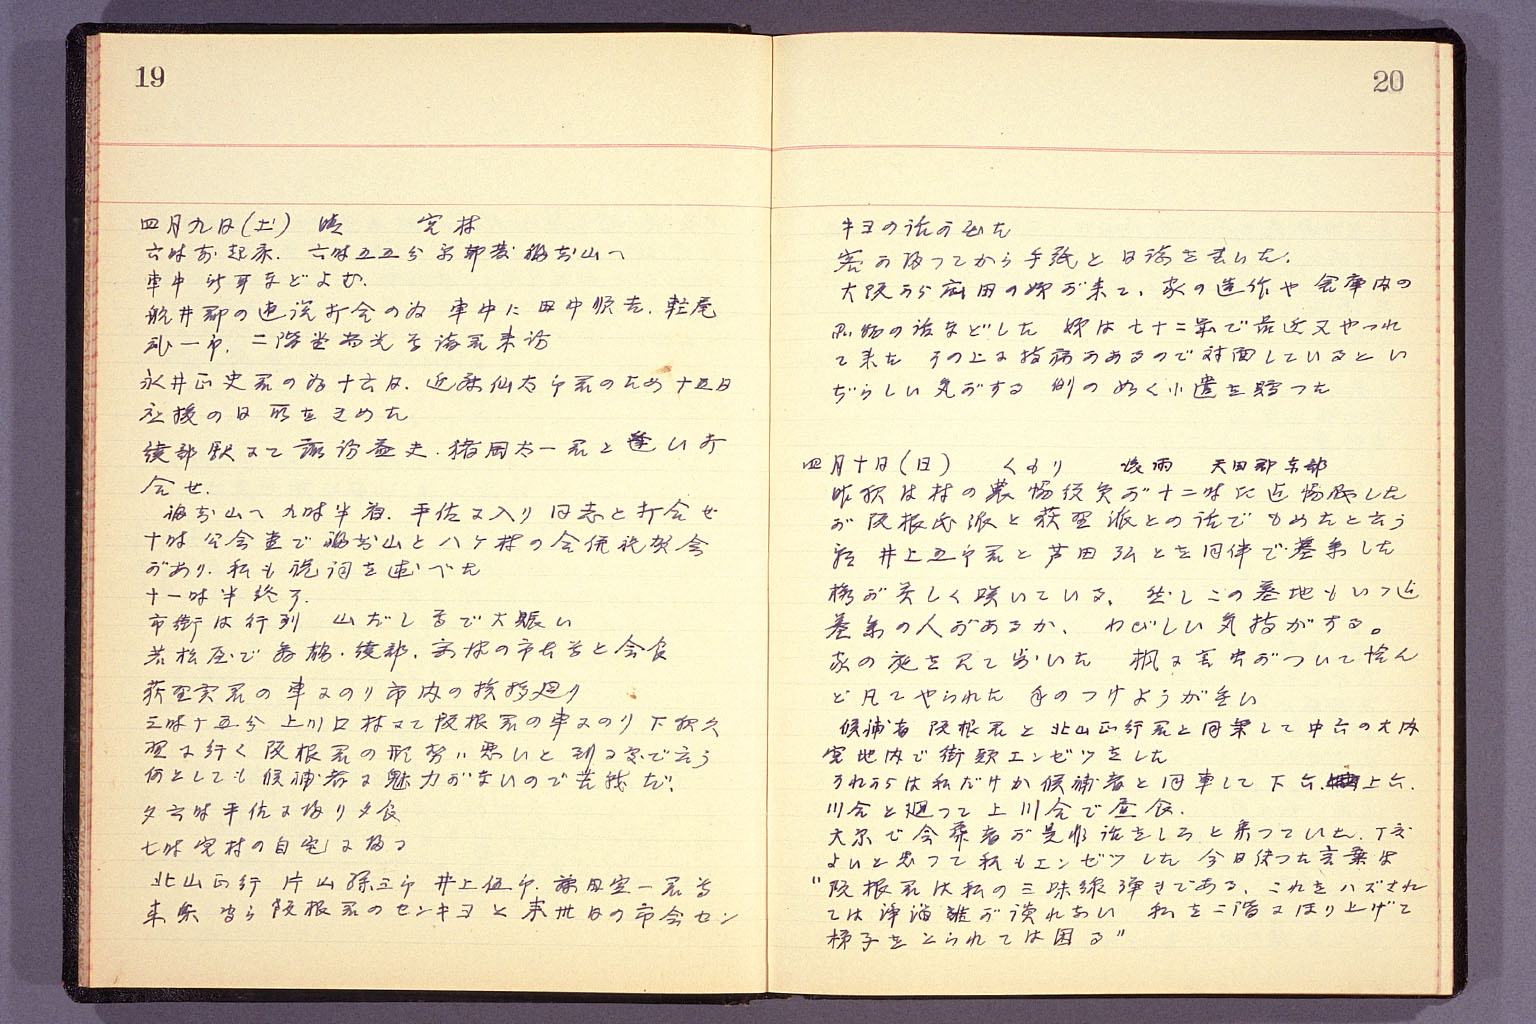 19
四月九日(土) 晴 宮村
六時前起床. 六時五五分 京都発 福知山へ
車中 新聞などよむ.
船井郡の連説打合の為 車中に 田中順吉. 軽尾
二階堂 等諸君来訪
永井正史君の為十六日. 近藤仙太郎君のため十五日
応援の日 所をきめた
綾部駅にて 諏訪 猪岡太一君と逢い打
合せ.
福知山へ 九時半着. 平佐に入り 同志と打合せ
十時 公会堂で福知山と八ケ村の合併祝賀会
があり. 私も祝詞を述べた
十一時半 終了.
市街は行列 山だし 等で大賑い
若松屋で 舞鶴・綾部. の市長等と会食
荻野 君の車にのり市内の挨拶廻り
三時十五分 上川口村にて阪根君の車にのり 下夜久
野に行く 阪根君の形勢 悪いと到る処で云う
何としても候補者に魅力がないので苦戦だ.
夕六時 平佐に帰り夕食
七時宮村の自宅に帰る
北山正行 片山 三郎 井上伍郎. 前田 一君等
来集 阪根君のセンキヨと 来卅日の市会セン
20
キヨの話をした
客が帰ってから手紙と日誌を書いた.
大阪から 田の姉が来て、家の造作や 倉庫内の
品物の話などした 姉は七十二歳で最近又やつれ
て来た その上に持病もあるので対面しているとい
ぢらしい気がする 例の如く小遣を贈った
四月十日(日) くもり 後雨 天田郡
昨夜は村の農協役員が十二時 迄協議した
が 阪根氏派と荻野派との話で もめたと云う
朝 井上五郎君と芦田弘とを同伴で墓参した
桜が美しく咲いている、 然しこの墓地もいつ迄
墓参の人があるか、 わびしい気持がする。
家の庭を見て歩いた 楓に害虫がついて殆ん
ど凡てやられた 手のつけようが無い
候補者 阪根君と 北山正行君と同乗して中六の大内
宮地内で街頭エンゼツをした
それからは私だけが候補者と同車して 下六. 上六.
川合と廻って上川合で昼食.
大原で会葬者が是非話をしろと集っていた. 丁度
よいと思って私もエンゼツした 今日使った言葉は
"阪根君は私の三味線弾きである、これをハズされ
ては浄瑠璃が語れない 私を二階にほり上げて
梯子をとられては困る"